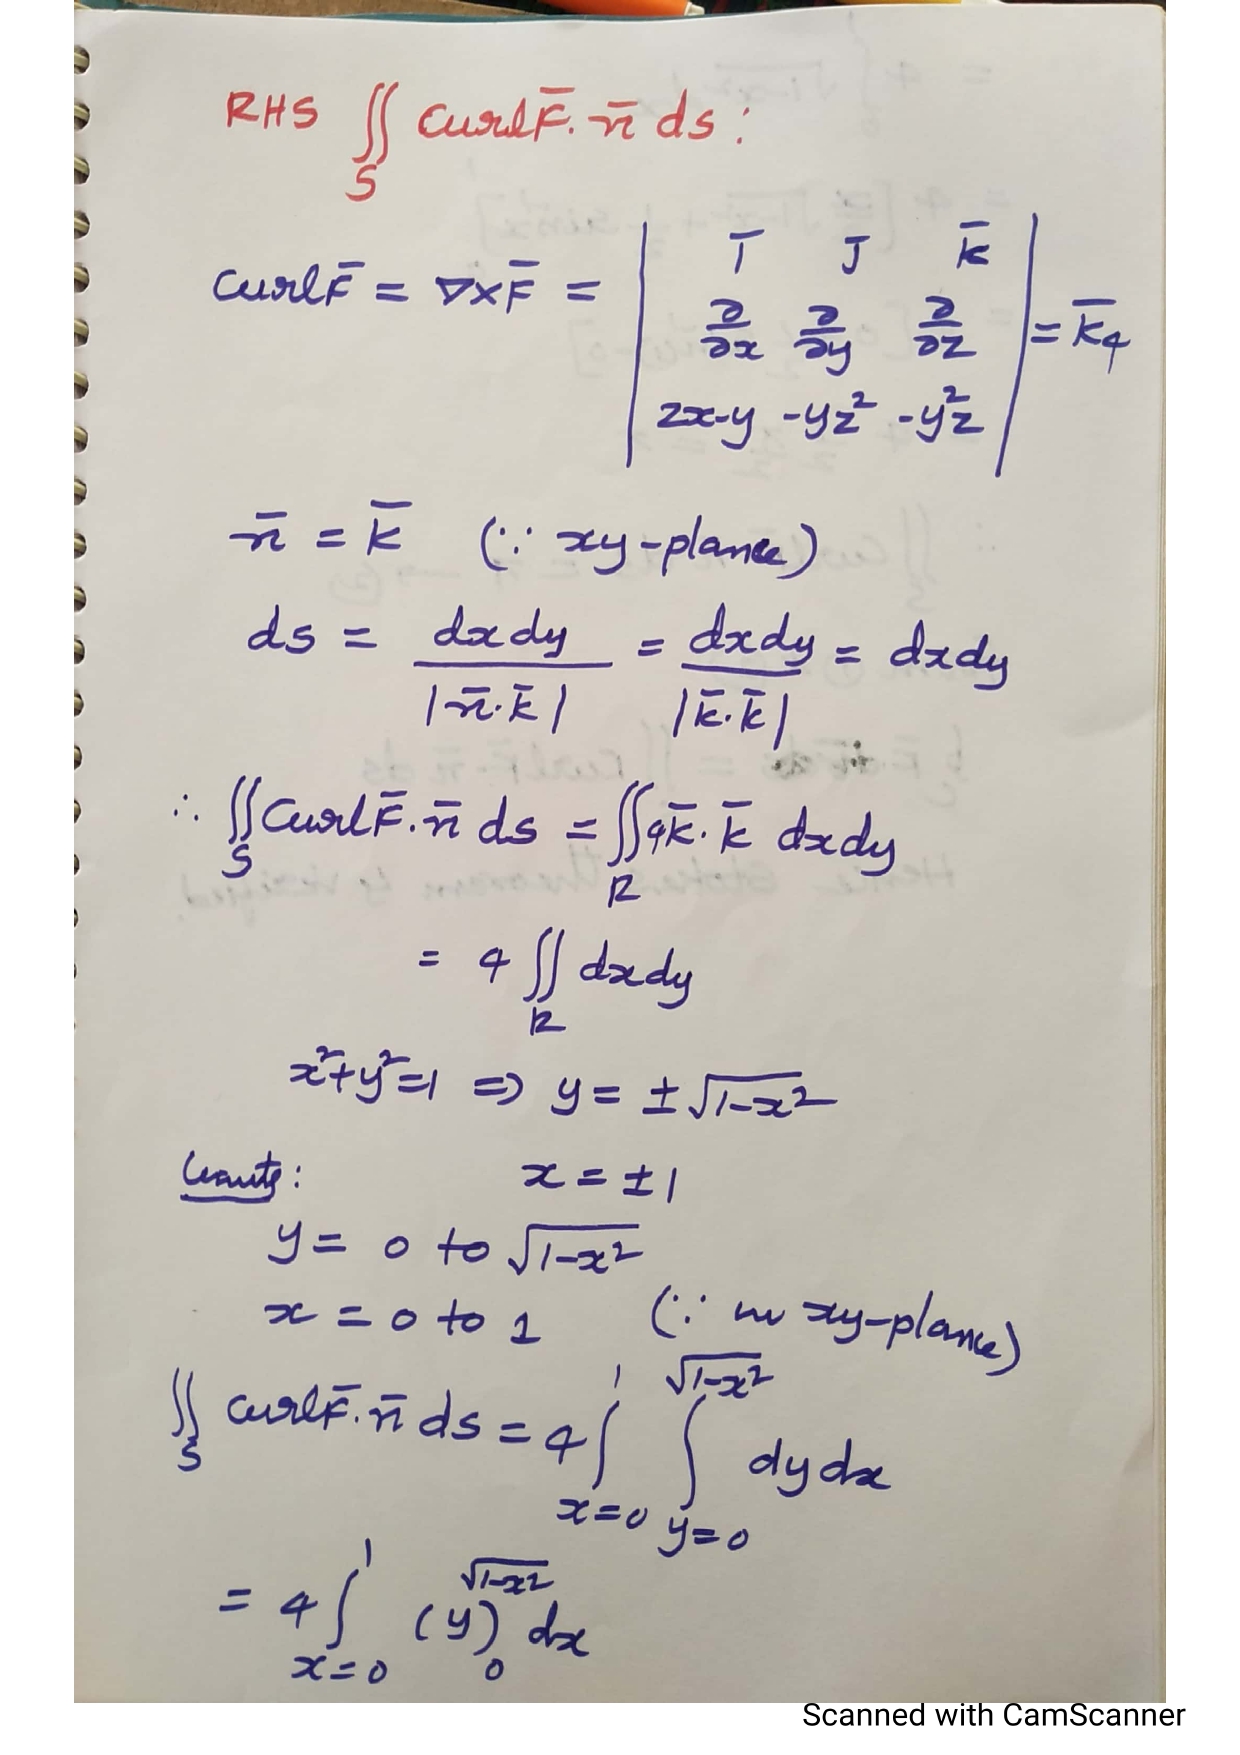 RHS ∬_S Curl F̄. n̄ ds :
Curl F̄ = ∇×F̄ = | ī J k̄ |
| ∂/∂x ∂/∂y ∂/∂z | = k̄4
| 2x-y -yz² -y²z |
n̄ = k̄ (∵ xy-plane)
ds = dxdy/|n̄.k̄| = dxdy/|k̄.k̄| = dxdy
∴ ∬_S Curl F̄. n̄ ds = ∬_R 4k̄. k̄ dxdy
= 4 ∬_R dxdy
x²+y²=1 ⇒ y = ±√(1-x²)
x = ±1
y = 0 to √(1-x²)
x = 0 to 1 (∵ in xy-plane)
∬_S Curl F̄. n̄ ds = 4 ∫_{x=0}^{1} ∫_{y=0}^{√(1-x²)} dy dx
= 4 ∫_{x=0}^{1} (y)_0^{√(1-x²)} dx
Scanned with CamScanner